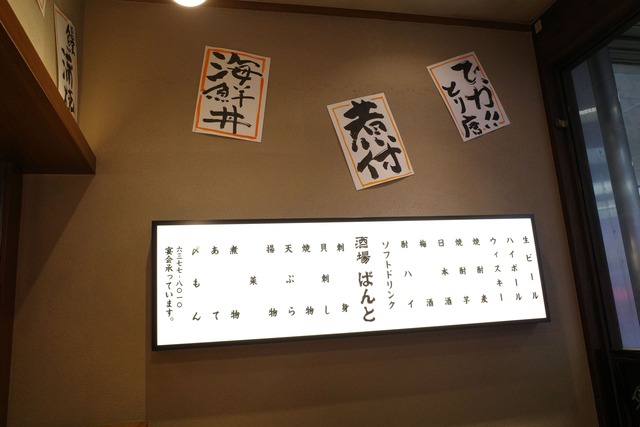 海鮮丼
煮付
でっか!!
とり唐
生ビール
ハイボール
ウィスキー
焼酎麦
焼酎芋
日本酒
梅酒
酎ハイ
ソフトドリンク
酒場 ばんと
刺身
貝刺し
焼物
天ぷら
揚物
菜
煮物
あて
〆もん
六三七七-八〇一〇
宴会承っています。